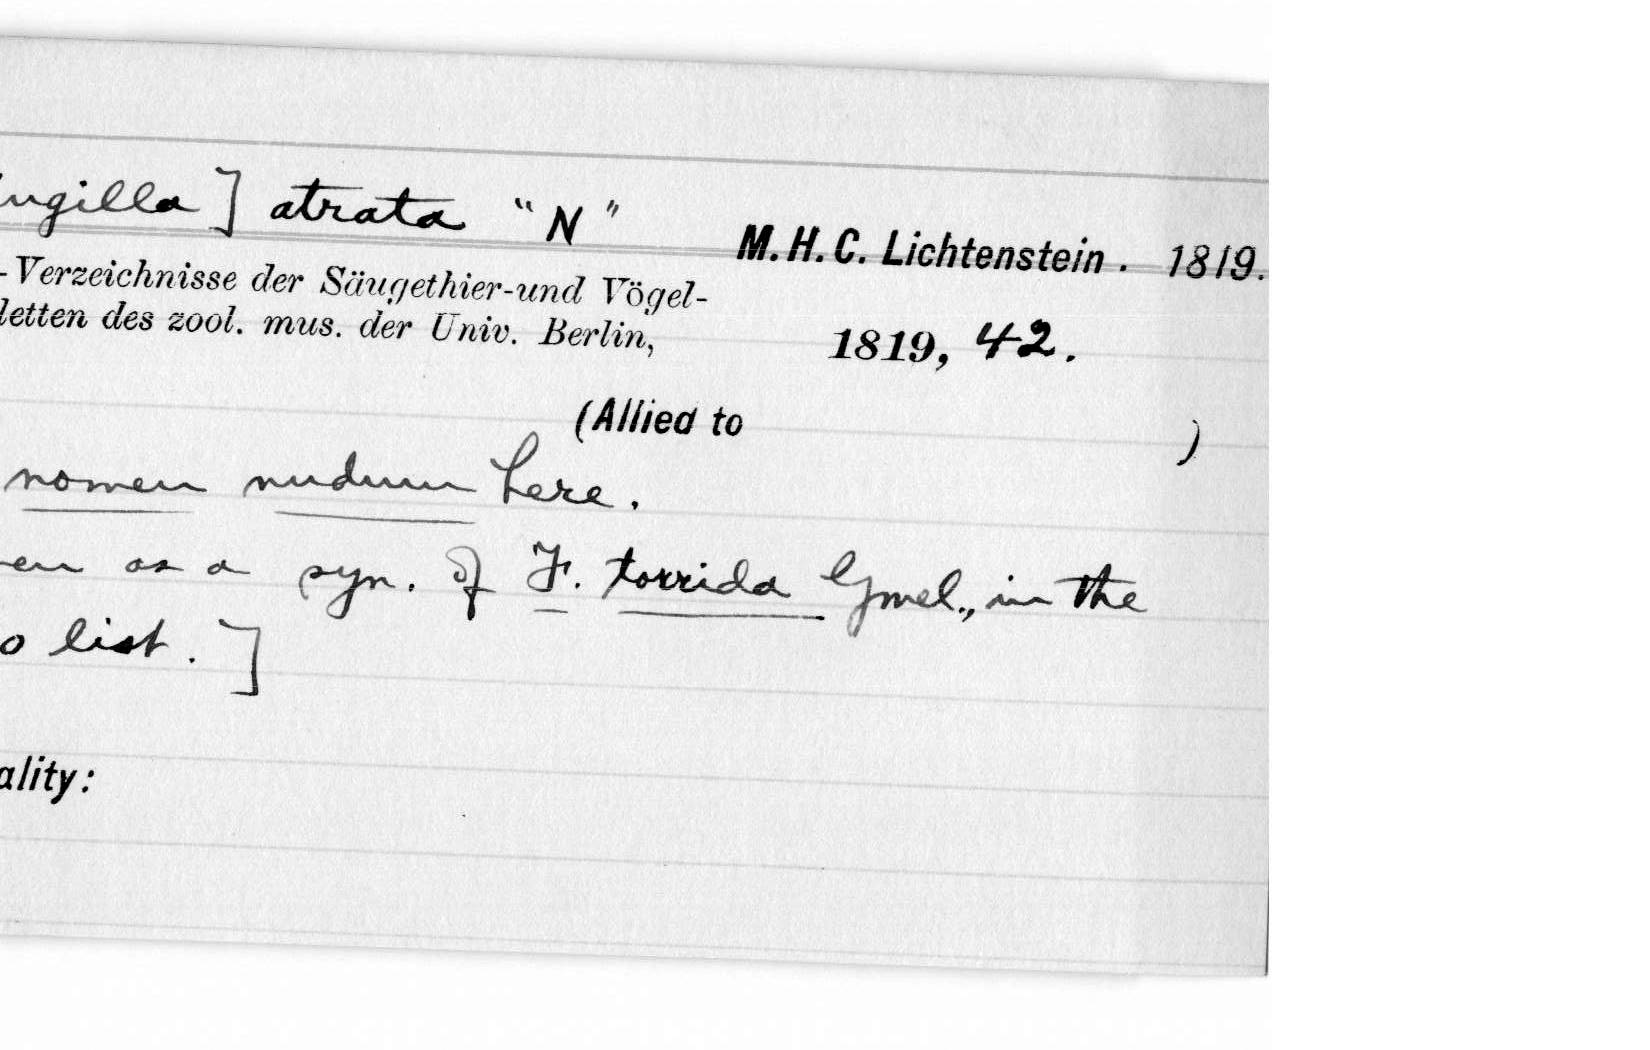 ngilla] atrata "N" M.H.C. Lichtenstein. 1819.
-Verzeichnisse der Säugethier-und Vögel-
letten des zool. mus. der Univ. Berlin, 1819, 42.
(Allied to )
nomen nudum here.
en as a syn. of F. torrida Gmel., in the
o list.]
ality: